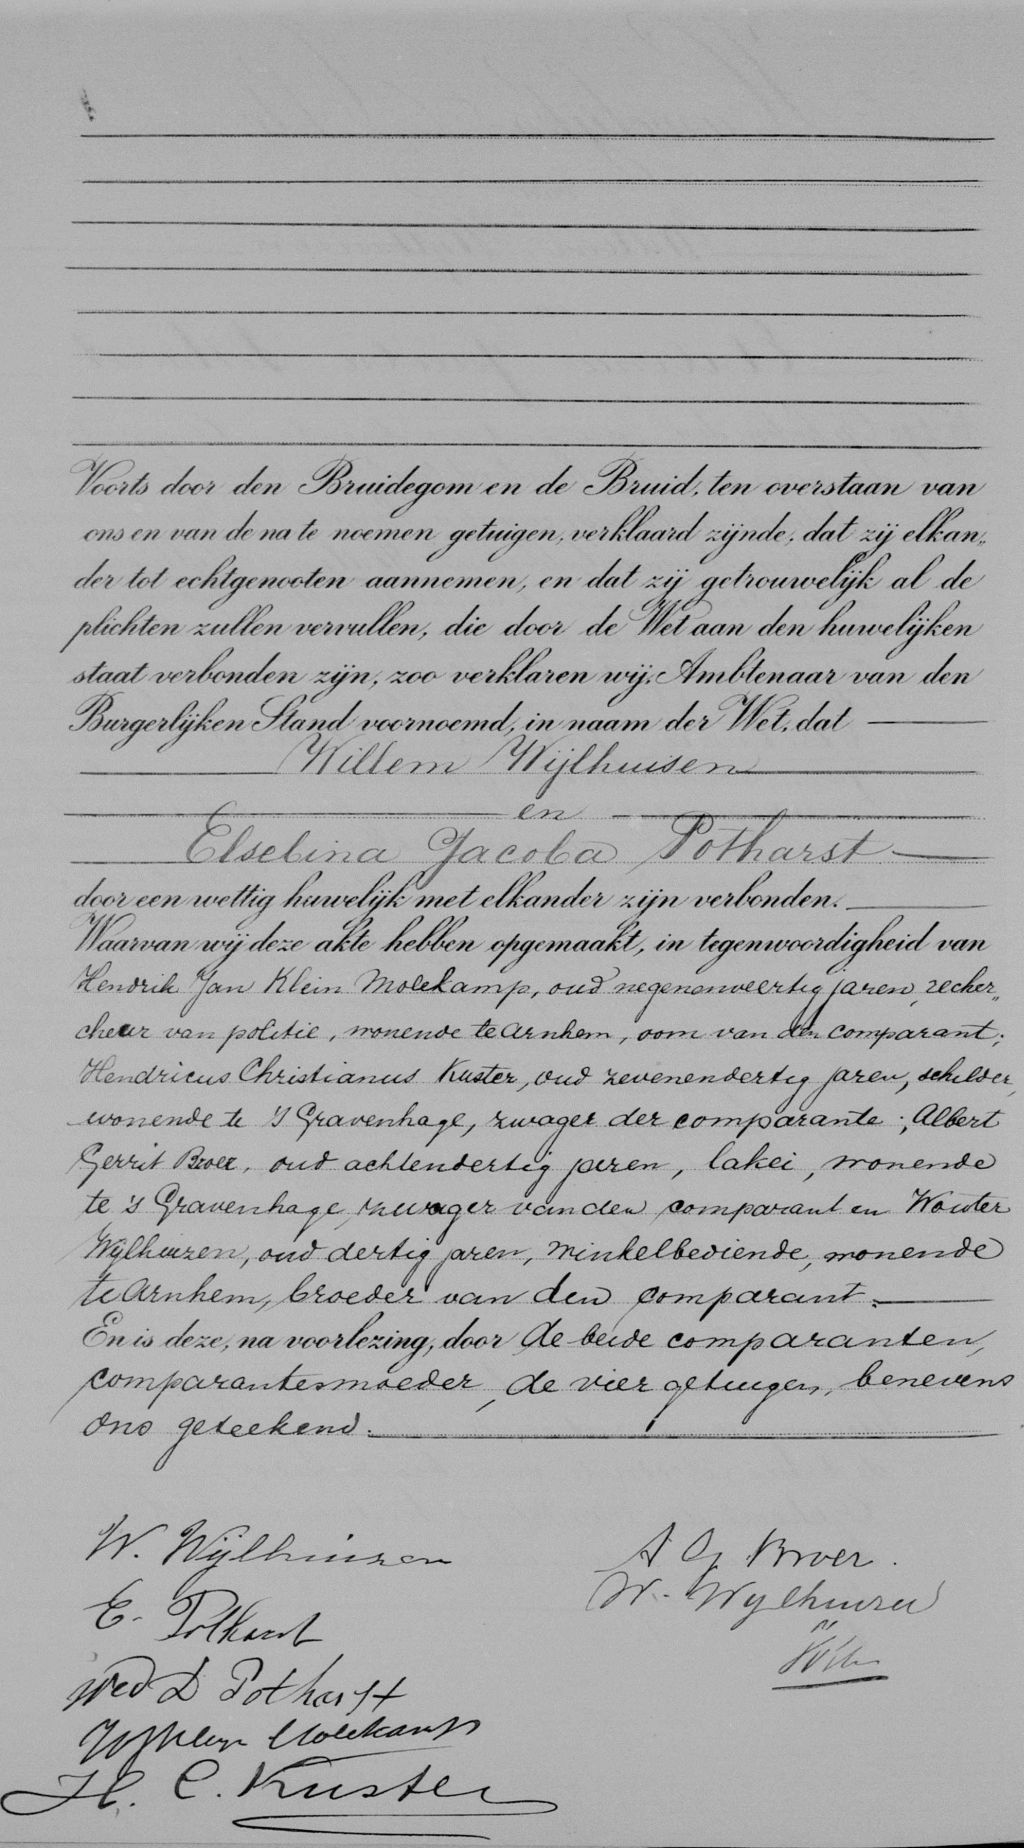 Voorts door den Bruidegom en de Bruid, ten overstaan van
ons en van de na te noemen getuigen, verklaard zijnde, dat zij elkan„
der tot echtgenooten aannemen, en dat zij getrouwelijk al de
plichten zullen vervullen, die door de Wet aan den huwelijken
staat verbonden zijn, zoo verklaren wij, Ambtenaar van den
Burgerlijken Stand voornoemd, in naam der Wet, dat
Willem Wijlhuisen
en
Elsebina Jacoba Potharst
door een wettig huwelijk met elkander zijn verbonden.
Waarvan wij deze akte hebben opgemaakt, in tegenwoordigheid van
Hendrik Jan Klein Molekamp, oud negenenveertig jaren, recher„
cheur van politie, wonende te Arnhem, oom van den comparant;
Hendricus Christianus Kuster, oud zevenendertig jaren, schilder,
wonende te 's Gravenhage, zwager der comparante; Albert
Gerrit Broer, oud achtendertig jaren, lakei, wonende
te 's Gravenhage, zwager van den comparant en Wouter
Wijlhuizen, oud dertig jaren, winkelbediende, wonende
te Arnhem, broeder van den comparant.
En is deze, na voorlezing, door de beide comparanten,
comparantesmoeder, de vier getuigen, benevens
ons geteekend.
W. Wijlhuizen
E. Potharst
Wed D Potharst
HJKlein Molekamp
H. C. Kuster
A G Broer.
W. Wijlhuizen